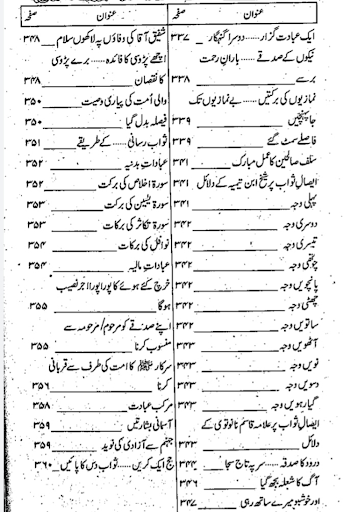 عنوان صفحہ
ایک عبادت گزار......دوسرا گنہگار ۳۳۷
نیکوں کے صدقے......باران رحمت
برسے ۳۳۸
نمازیوں کی برکتیں......بے نمازیوں تک
جا پہنچیں ۳۳۹
فاصلے سمٹ گئے ۳۳۹
سلف صالحین کا عمل مبارک ۳۴۱
ایصال ثواب پر شیخ ابن تیمیہ کے دلائل ۳۴۱
پہلی وجہ ۳۴۱
دوسری وجہ ۳۴۲
تیسری وجہ ۳۴۲
چوتھی وجہ ۳۴۲
پانچویں وجہ ۳۴۲
چھٹی وجہ ۳۴۲
ساتویں وجہ ۳۴۲
آٹھویں وجہ ۳۴۳
نویں وجہ ۳۴۳
دسویں وجہ ۳۴۳
گیارہویں وجہ ۳۴۳
ایصال ثواب پر علامہ قاسم نانوتوی کے
دلائل ۳۴۳
درود کا صدقہ......سر پہ تاج سجا ۳۴۴
آگ کا شعلہ بجھ گیا ۳۴۶
اور خوشبو میرے ساتھ رہی ۳۴۷
عنوان صفحہ
شفیق آقا کی وفاؤں پہ لاکھوں سلام ۳۴۸
اچھے پڑوسی کا فائدہ......برے پڑوسی
کا نقصان ۳۴۸
والی امت کی پیاری وصیت ۳۵۰
فیصلہ بدل گیا ۳۵۰
ثواب رسانی......کے طریقے ۳۵۱
عبادات بدنیہ ۳۵۲
سورۃ اخلاص کی برکت ۳۵۲
سورۃ یٰسین کی برکت ۳۵۳
سورۃ تکاثر کی برکات ۳۵۳
نوافل کی برکات ۳۵۴
عبادات مالیہ ۳۵۴
خرچ کئے ہوئے کا پورا پورا اجر نصیب
ہوگا ۳۵۵
اپنے صدقے کو مرحوم/مرحومہ سے
منسوب کرنا ۳۵۵
سرکار ﷺ کا امت کی طرف سے قربانی
کرنا ۳۵۶
مرکب عبادت ۳۵۸
آسمانی بشارتیں ۳۵۹
جہنم سے آزادی کی نوید ۳۵۹
حج ایک کریں......ثواب دس کا پائیں ۳۶۰